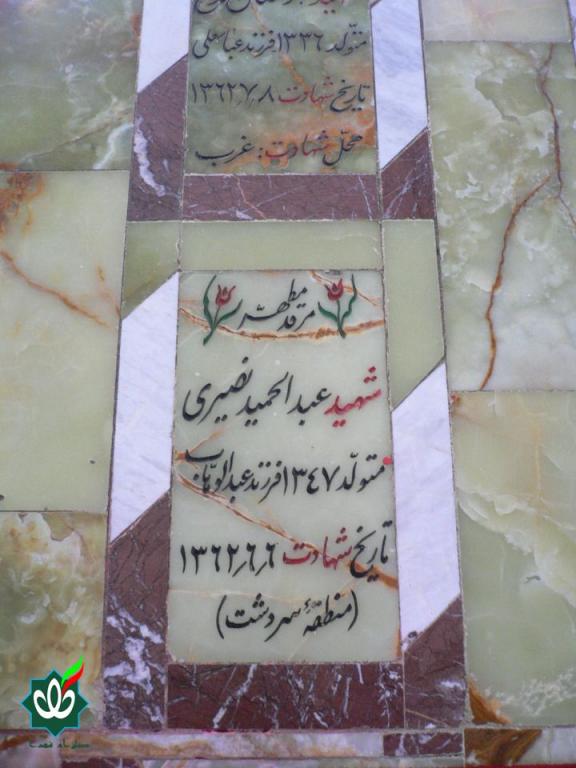 متولد ۱۳۳۶ فرزند عباسعلی
تاریخ شهادت ۱۳۶۲٫۷٫۸
محل شهادت : غرب
مرقد مطهر
شهید عبدالحمید نصیری
متولد ۱۳۴۷ فرزند عبدالوهاب
تاریخ شهادت ۱۳۶۲٫۶٫۶
(منطقه سردشت)